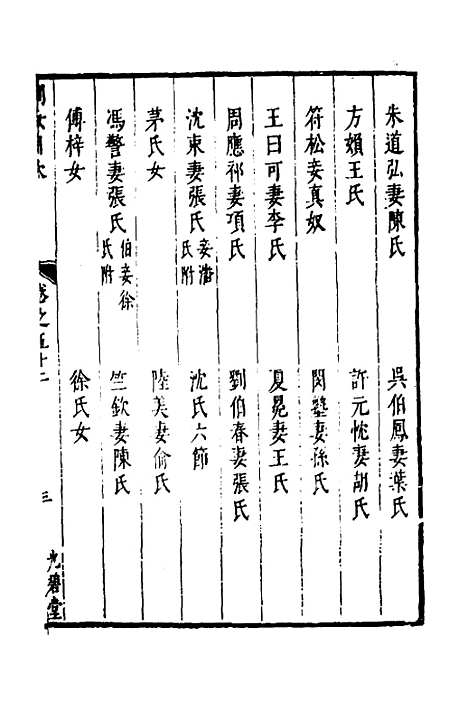 朱道弘妻陳氏
吳伯鳳妻葉氏
方嬪王氏
許元忱妻胡氏
符松妾真奴
閔鏊妻孫氏
王曰可妻李氏
夏晃妻王氏
周應祁妻項氏
劉伯春妻張氏
沈束妻張氏 妾潘氏附
沈氏六節
茅氏女
陸美妻俞氏
馮警妻張氏 伯妾徐氏附
竺欽妻陳氏
傅梓女
徐氏女
卷之五十二
三
光碧堂